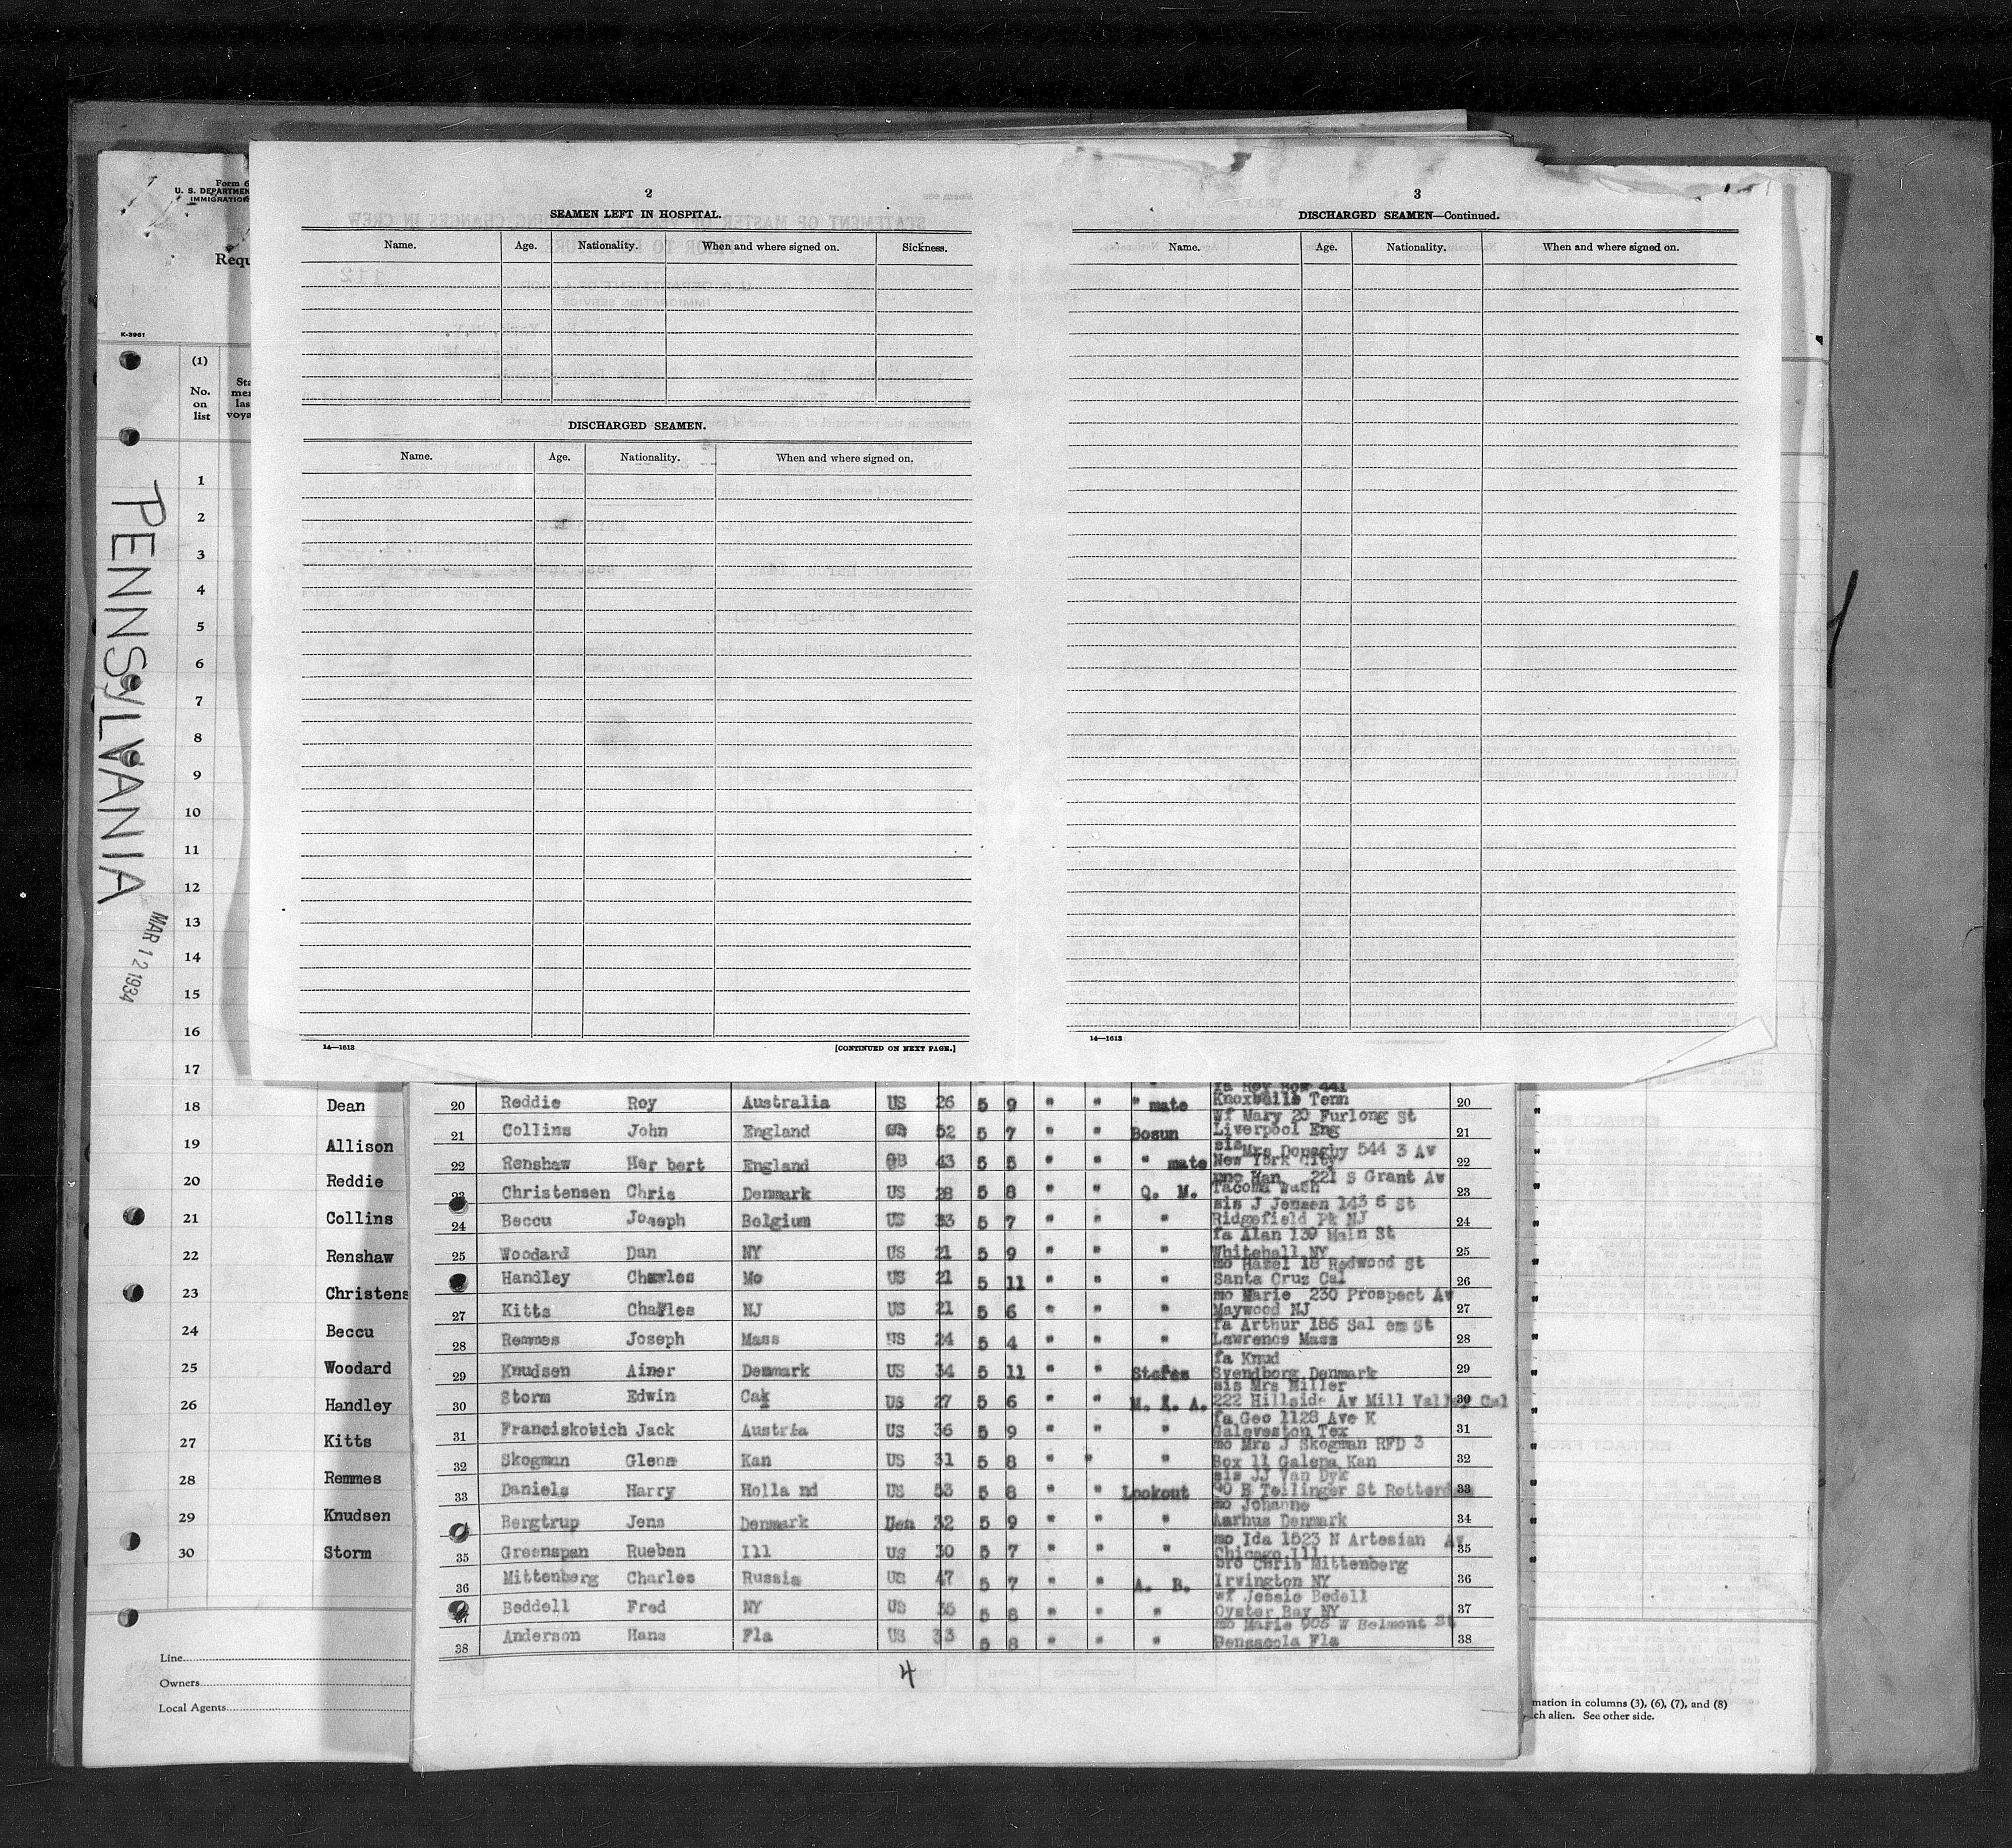 Form 6
U. S. DEPARTMEN
IMMIGRATION
Requ
K-3961
(1)
No.
on
list
Sta
men
las
voya
PENNSYLVANIA
MAR 12 1934
1
2
3
4
5
6
7
8
9
10
11
12
13
14
15
16
17
18 Dean
19 Allison
20 Reddie
21 Collins
22 Renshaw
23 Christens
24 Beccu
25 Woodard
26 Handley
27 Kitts
28 Remmes
29 Knudsen
30 Storm
Line
Owners
Local Agents
2
SEAMEN LEFT IN HOSPITAL.
Name. Age. Nationality. When and where signed on. Sickness.
DISCHARGED SEAMEN.
Name. Age. Nationality. When and where signed on.
14—1613 [CONTINUED ON NEXT PAGE.]
3
DISCHARGED SEAMEN—Continued.
Name. Age. Nationality. When and where signed on.
14—1613
fa Roy Box 441
20 Reddie Roy Australia US 26 5 9 " " " mate Knoxville Tenn 20
wf Mary 20 Furlong St
21 Collins John England 52 5 7 " " Bosun Liverpool Eng 21
sis Mrs Donaghy 544 3 Av
22 Renshaw Her bert England GB 43 5 5 " " " mate New York City 22
unc Han 221 S Grant Av
23 Christensen Chris Denmark US 28 5 8 " " Q. M. Tacoma Wash 23
sis J Jensen 143 5 St
24 Beccu Joseph Belgium US 33 5 7 " " " Ridgefield Pk NJ 24
fa Alan 139 Main St
25 Woodard Dan NY US 21 5 9 " " " Whitehall NY 25
mo Hazel 18 Redwood St
Handley Charles Mo US 21 5 11 " " " Santa Cruz Cal 26
mo Marie 230 Prospect Av
27 Kitts Charles NJ US 21 5 6 " " " Maywood NJ 27
fa Arthur 186 Sal em St
28 Remmes Joseph Mass US 24 5 4 " " " Lawrence Mass 28
fa Knud
29 Knudsen Ainer Denmark US 34 5 11 " " Stores Svendborg Denmark 29
sis Mrs Miller
30 Storm Edwin Cal US 27 5 6 " " M. A. A. 222 Hillside Av Mill Valley Cal 30
fa Geo 1128 Ave K
31 Franciskobich Jack Austria US 36 5 9 " " " Galeveston Tex 31
mo Mrs J Skogman RFD 3
32 Skogman Glenn Kan US 31 5 8 " " " Box 11 Galena Kan 32
sis JJ Van Dyk
33 Daniels Harry Holla nd US 53 5 8 " " Lookout 90 B Teilinger St Rotterdam 33
mo Johanne
Bergtrup Jens Denmark Den 32 5 9 " " " Aarhus Denmark 34
mo Ida 1523 N Artesian Av
35 Greenspan Rueben Ill US 30 5 7 " " " Chicago Ill 35
bro Chris Mittenberg
36 Mittenberg Charles Russia US 47 5 7 " " A. B. Irvington NY 36
wf Jessie Bedell
37 Beddell Fred NY US 35 5 8 " " " Oyster Bay NY 37
mo Marie 905 W Belmont St
38 Anderson Hans Fla US 33 5 8 " " " Pensacola Fla 38
4
mation in columns (3), (6), (7), and (8)
ch alien. See other side.